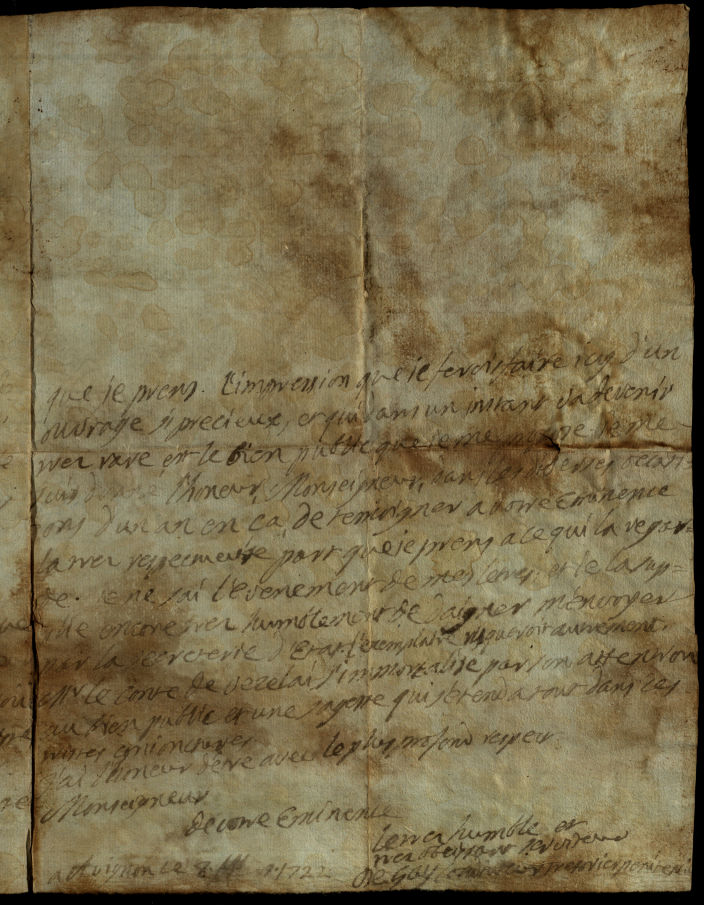 que je prens. l'impression que ie ferois faire icy d'un
ouvrage si precieux, et qui dans un instant va devenir
tres rare est le bien public que ie me
donné l'honeur, Monseigneur, dans
d'un an en ca, de temoigner a votre Eminence
la tres respectueuse part que ie prens a ce qui la regar=
de. ie ne sai l'evenement de mes letres, et ie la sup=
plie encore tres humblement de daigner m'envoyer
par la secreterie d'Etat l'exemplaire autrement.
Mr le conte de Vezelai s'immortalise par son attention
au bien public et une sagesse qui s'etend a tout dans ces
conionctures
j'ai l'honeur detre avec le plus profond respect.
Monseigneur
de votre Eminence
le tres humble et
tres obeissant serviteur
a Avignon ce 8 1722
De Gay